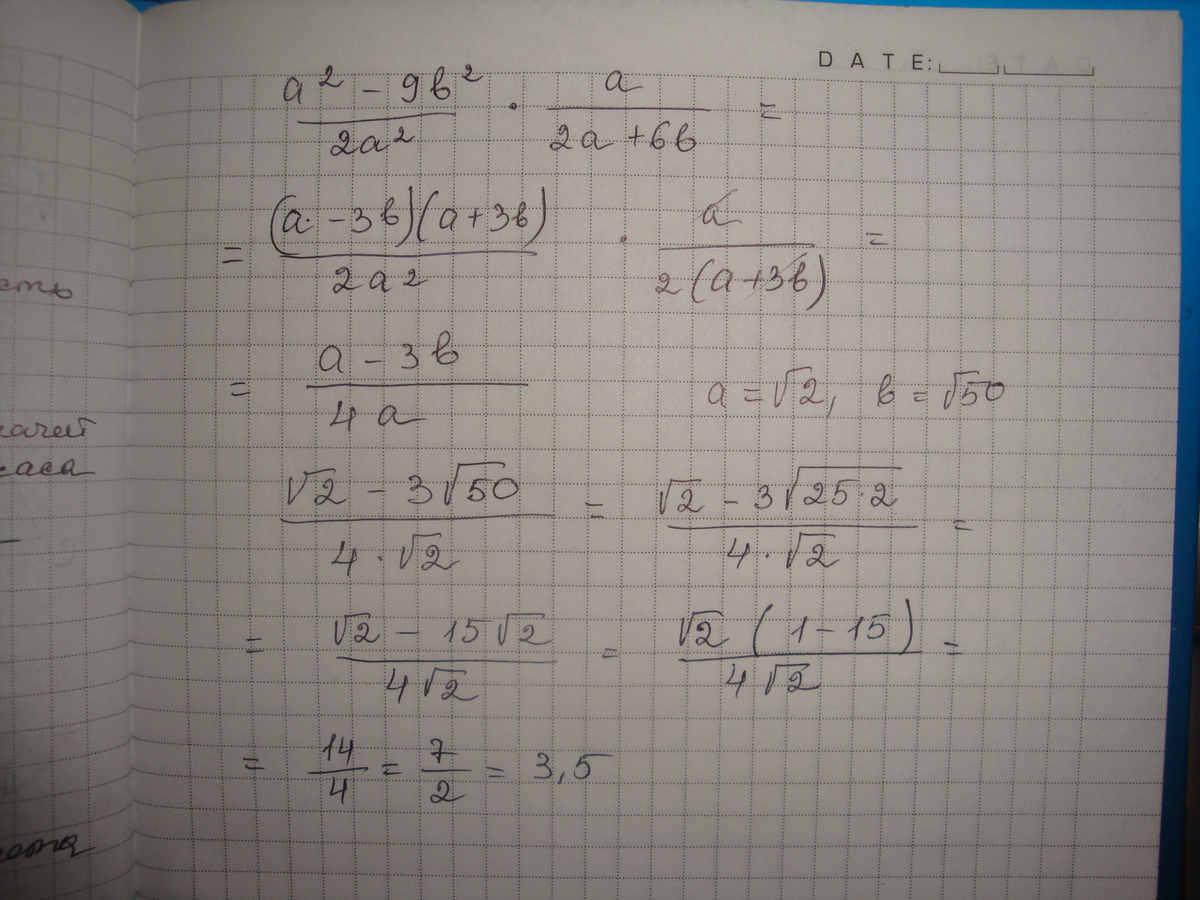 DATE:
a² - 9в² / 2a² · a / 2a + 6в =
= (a - 3в)(a + 3в) / 2a² · a / 2(a + 3в) =
= a - 3в / 4a
a = √2, в = √50
√2 - 3√50 / 4 · √2 = √2 - 3√25·2 / 4 · √2 =
= √2 - 15√2 / 4√2 = √2 (1 - 15) / 4√2 =
= 14/4 = 7/2 = 3,5